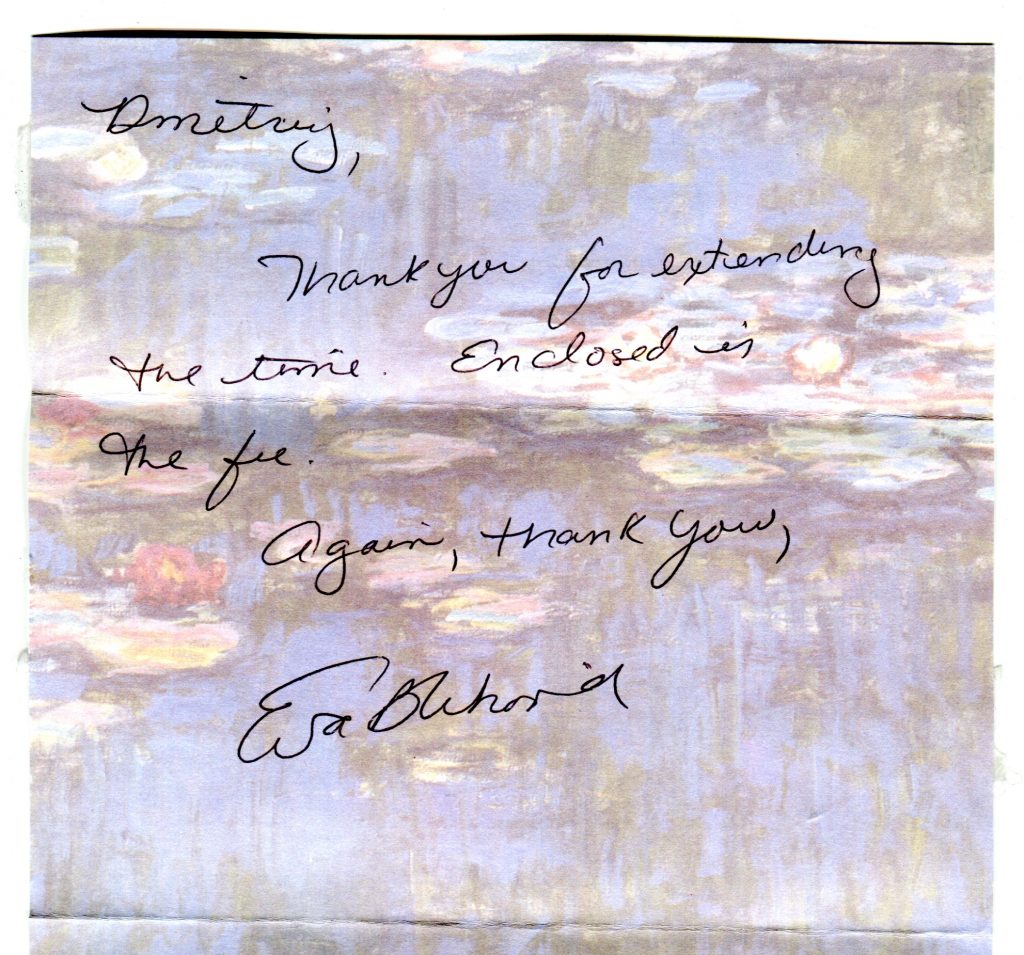 Dmitriy,
Thank you for extending
the time. Enclosed is
the fee.
Again, thank you,
Eva